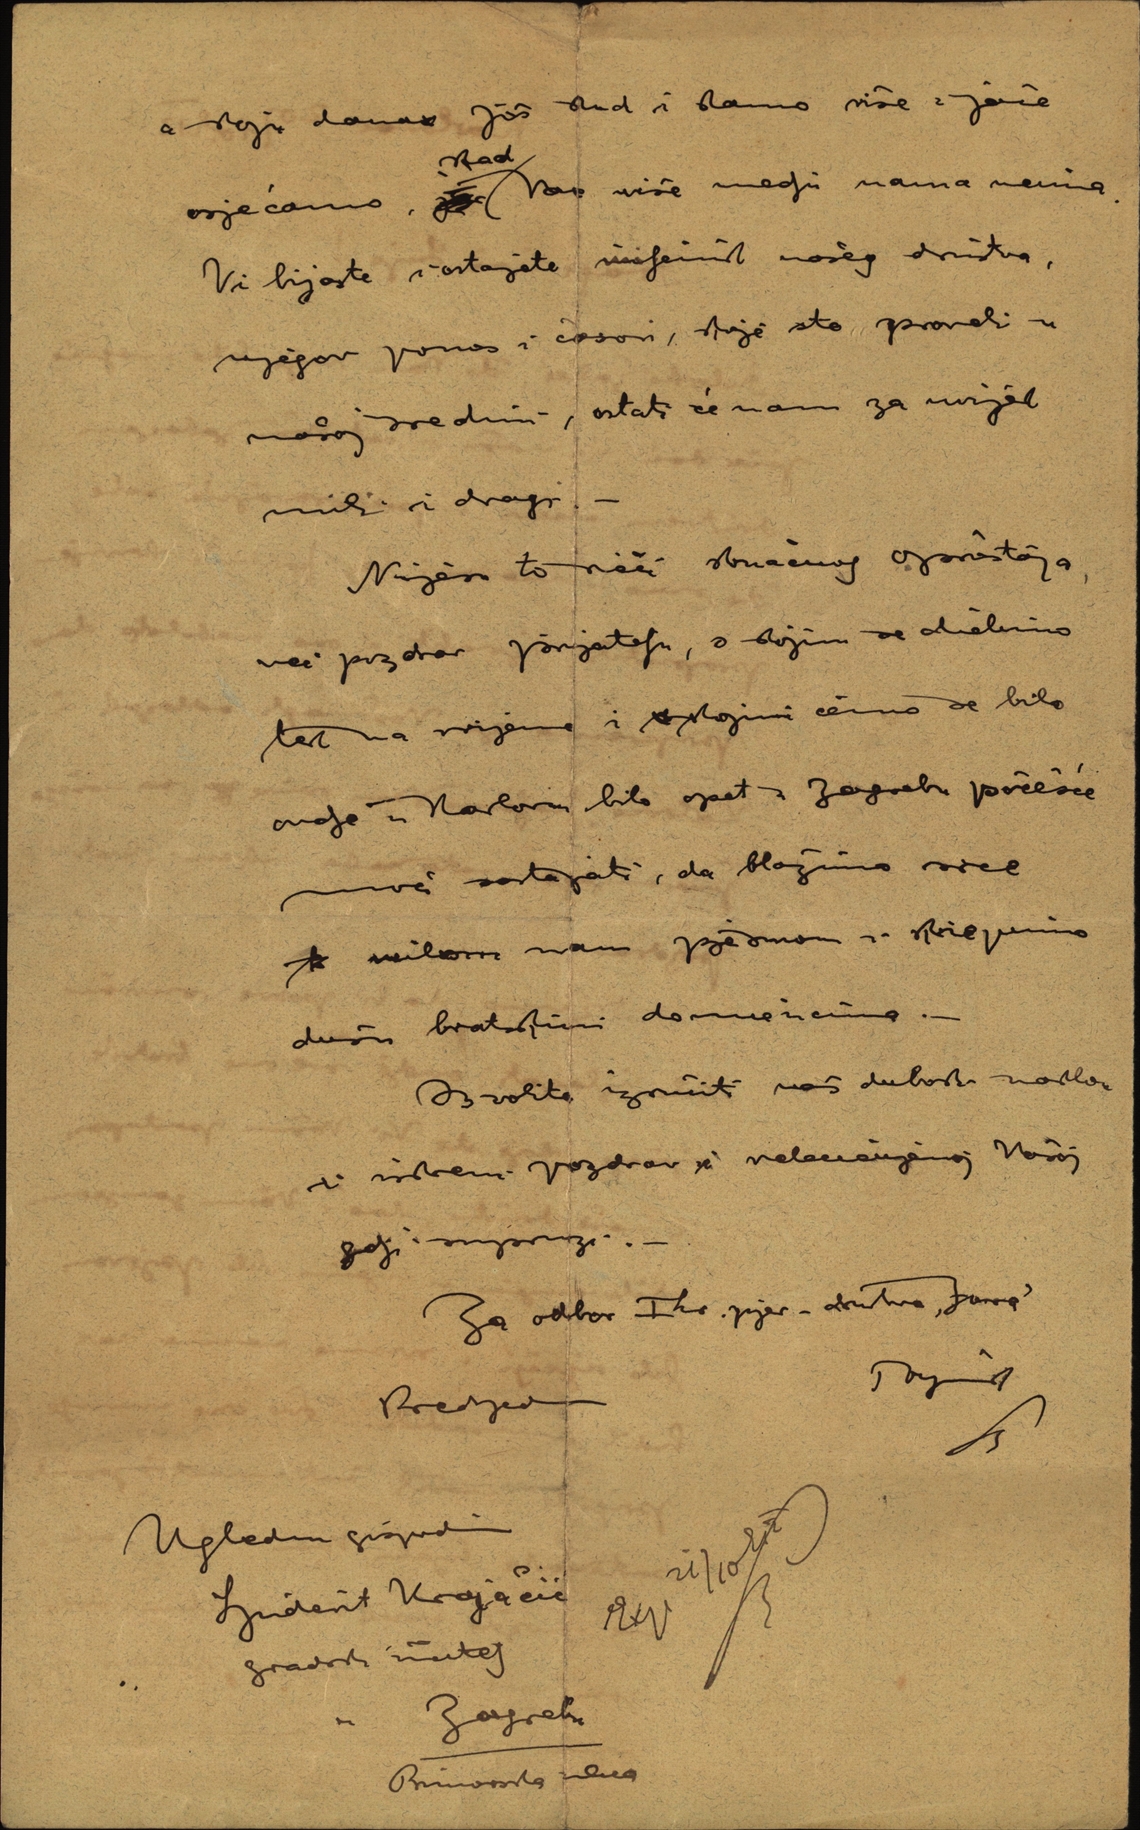 a koju danas još kud i kamo više i jače
kad
osjećamo, Vas više medju nama nema.
Vi bijaste i ostajete našeg društva,
njegov ponos i časovi, koje ste proveli u
našoj sredini, ostati će nam za uvijek
mili i dragi. —
Nijesu to rieči konačnog oproštaja,
već pozdrav prijatelju, s kojim se dielimo
tek na vrijeme i s kojim ćemo se bilo
ovdje u Karlovcu bilo opet u Zagrebu počešće
moći sastajati, da blažimo srce
milom nam pjesmom i kriepimo
dušu bratskim
Izvolite izručiti naš duboki naklon
i iskreni pozdrav i velecijenjenoj Vašoj
gdji supruzi. —
Za odbor I hr. pjev. društva „Zora“
Tajnik
Predsjednik
Ugledni gospodin
Krajačić
gradski učitelj
21/10
Exp
u Zagrebu
Primorska ulica